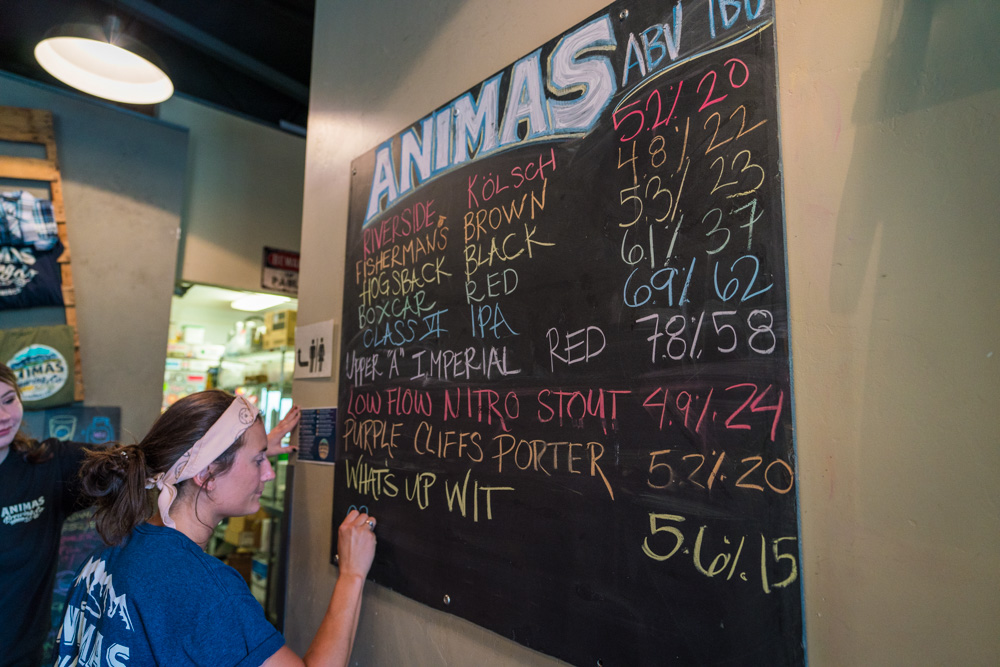 ANIMAS ABV IBU
RIVERSIDE KÖLSCH 5.2% 20
FISHERMAN'S BROWN 4.8% 22
HOGSBACK BLACK 5.3% 23
BOXCAR RED 6.1% 37
CLASS VI IPA 6.9% 62
UPPER "A" IMPERIAL RED 7.8% 58
LOW FLOW NITRO STOUT 4.9% 24
PURPLE CLIFFS PORTER 5.2% 20
WHATS UP WIT 5.6% 15
ANIMAS
ANIMAS